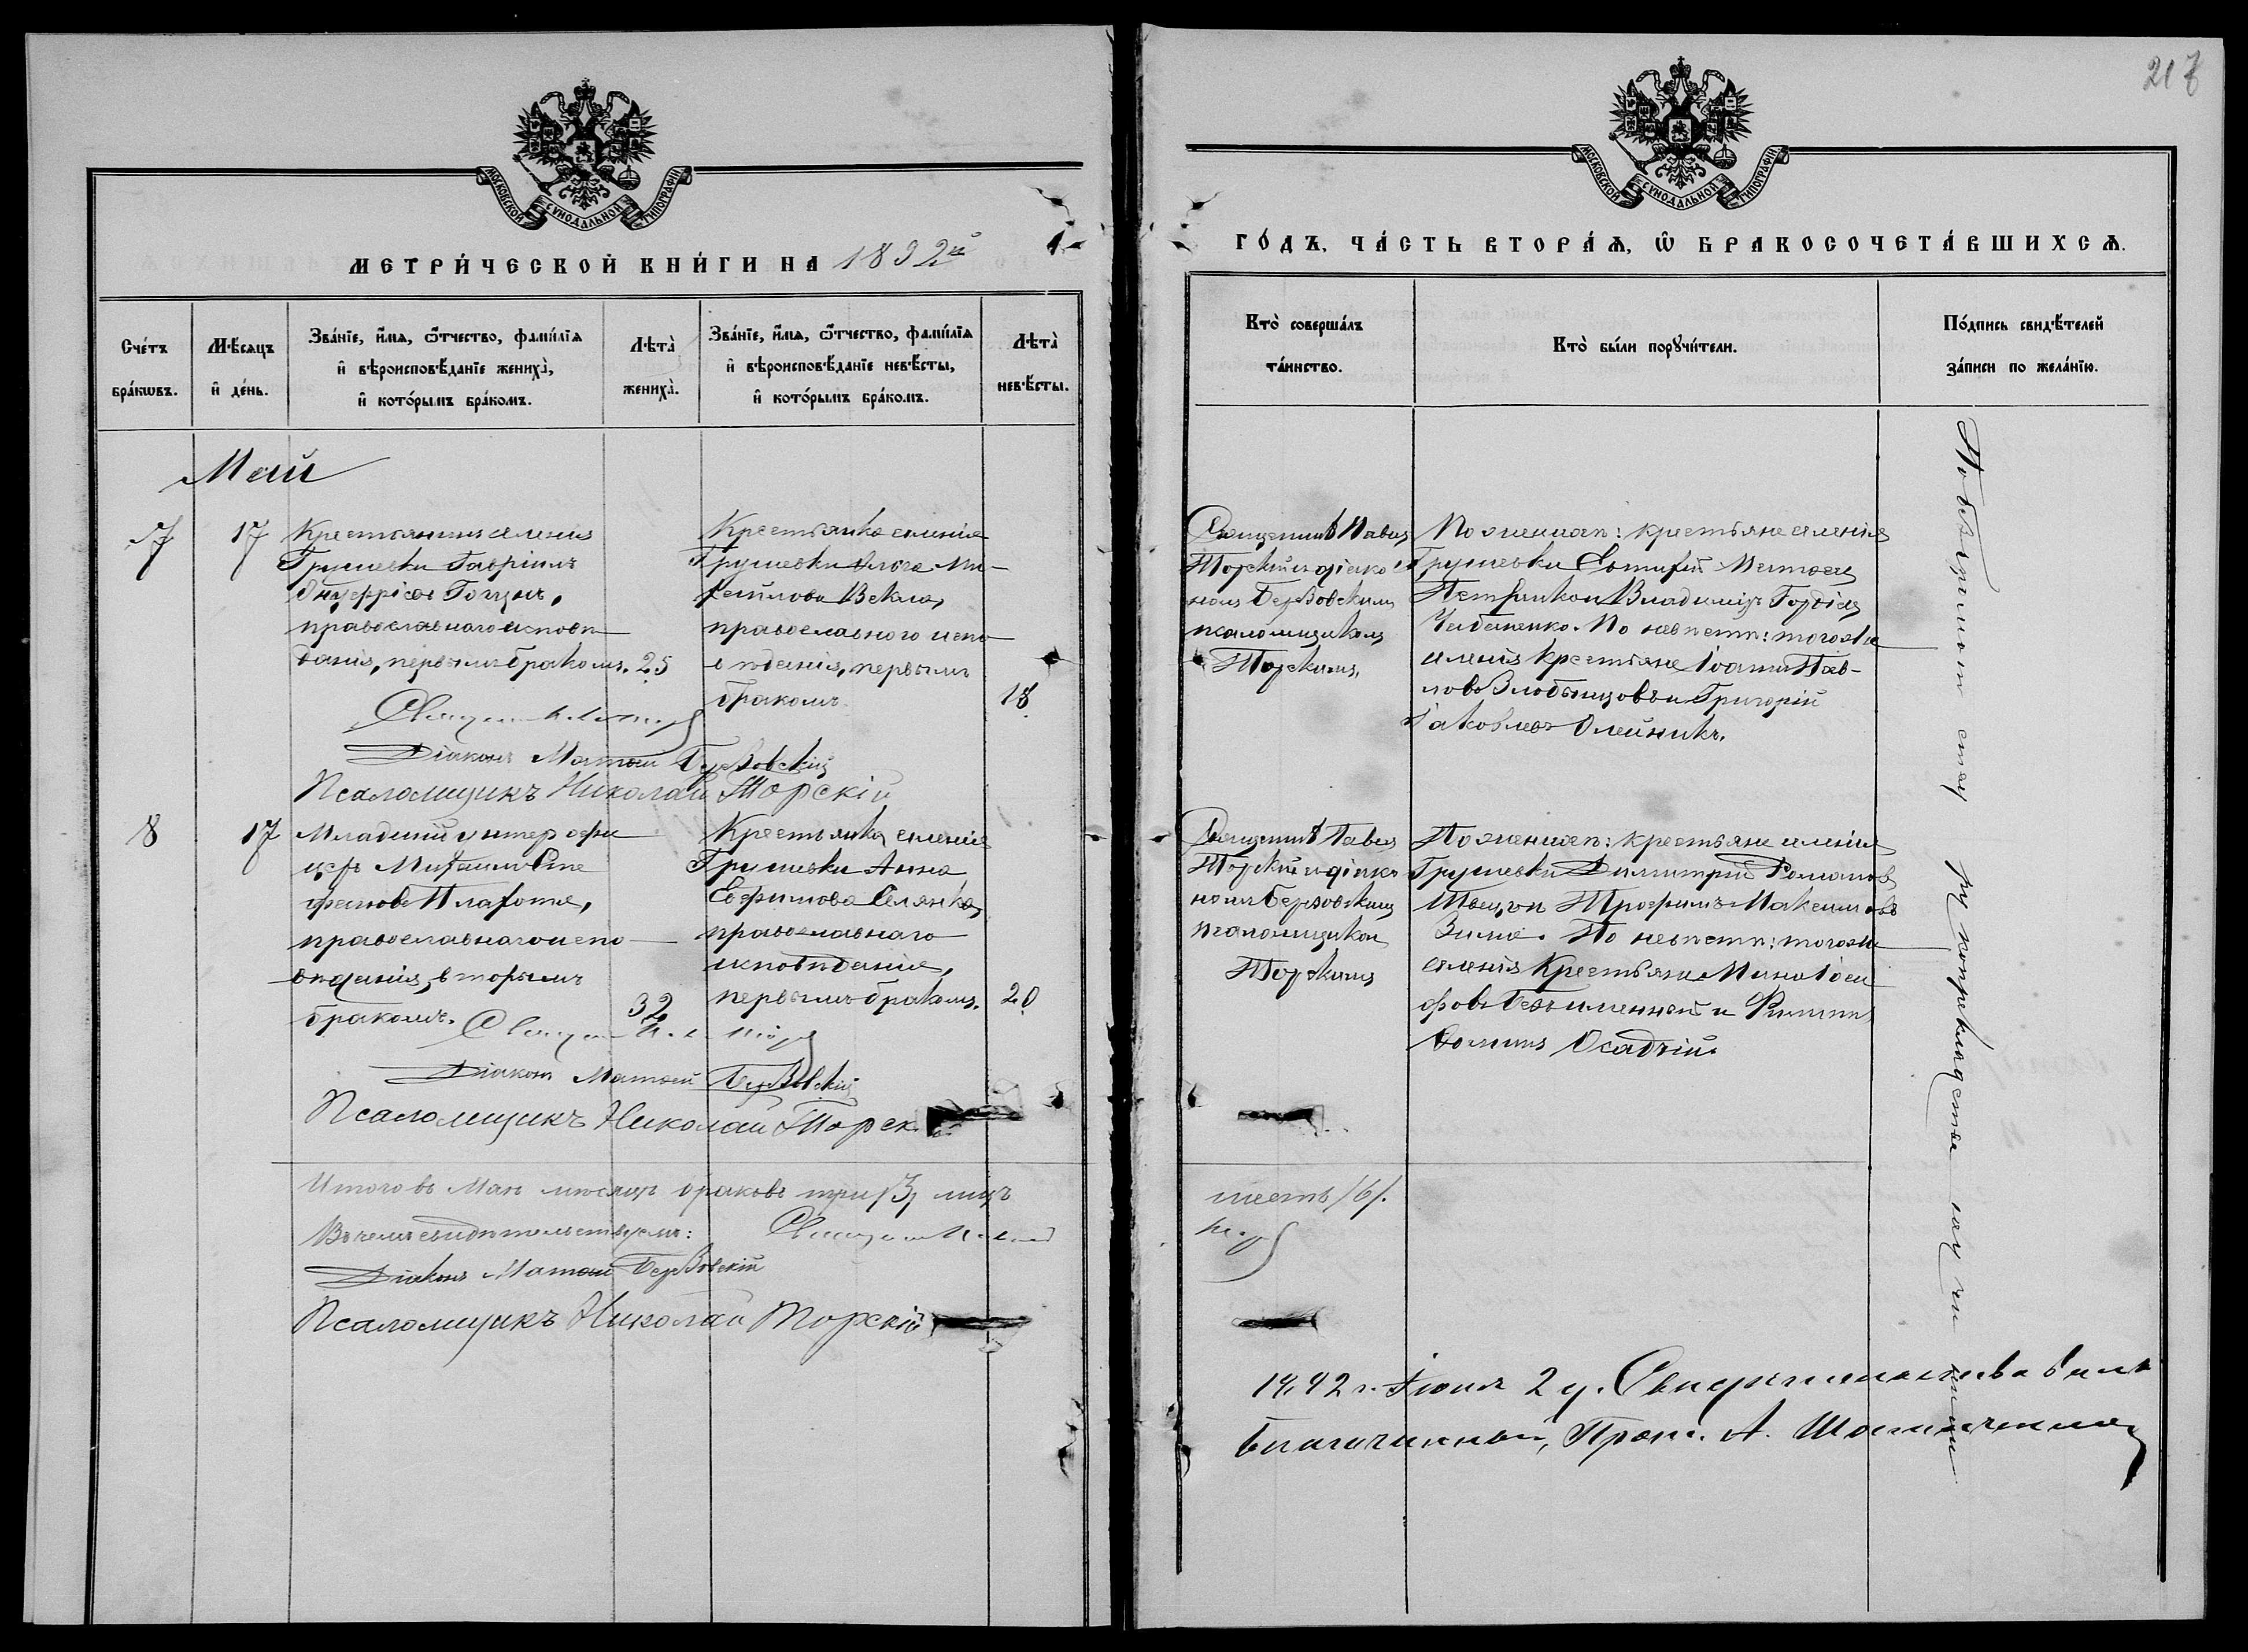 217
МОСКОВСКОЙ СѴНОДАЛЬНОЙ ТИПОГРАФІИ
МОСКОВСКОЙ СѴНОДАЛЬНОЙ ТИПОГРАФІИ
МЕТРИ́ЧЕСКОЙ КНИ́ГИ НА 1892й
ГО́ДЪ, ЧА́СТЬ ВТОРА́Ѧ, Ѽ БРАКОСОЧЕТА́ВШИХСѦ.
Сче́тъ бра́кѡвъ.
Мѣ́сѧцъ и҆ де́нь.
Зва́нїе, и҆́мѧ, ѻ҆́тчество, фами́лїѧ и҆ вѣроисповѣ́данїе жениха̀, и҆ кото́рымъ бра́комъ.
Лѣта̀ жениха̀.
Зва́нїе, и҆́мѧ, ѻ҆́тчество, фами́лїѧ и҆ вѣроисповѣ́данїе невѣ́сты, и҆ кото́рымъ бра́комъ.
Лѣта̀ невѣ́сты.
Кто̀ соверша́лъ та́инство.
Кто̀ бы́ли порꙋчи́тели.
По́дпись свидѣ́телей за́писи по жела́нїю.
Май
7
17
Крестьянинъ селенія
Грушевки Гавріилъ
Онуфріевъ
православнаго исповѣ-
данія, первымъ бракомъ.
25
Крестьянка селенія
Грушевки Ольга Ми-
хайлова
православнаго испо-
вѣданія, первымъ
бракомъ.
18
Священникъ Павелъ
Торскій съ діако-
номъ Березовскимъ
псаломщикомъ
Торскимъ.
По женихѣ: крестьяне селенія
Грушевки
Владиміръ Гордіевъ
По невѣстѣ: того же
селенія крестьяне Іоаннъ Пав-
ловъ Злобинцовъ и Григорій
Іаковлевъ Олейникъ.
Діаконъ Матѳей Березовскій
Псаломщикъ Николай Торскій
8
17
Младшій унтеръ офи-
церъ Михаилъ Сте-
фановъ Плахотя,
православнаго испо-
вѣданія, вторымъ
бракомъ.
32
Крестьянка селенія
Грушевки Анна
Евфимова Селянка,
православнаго
исповѣданія,
первымъ бракомъ.
20
Священникъ Павелъ
Торскій съ діако-
номъ Березовскимъ
псаломщикомъ
Торскимъ
По женихѣ: крестьяне селенія
Грушевки Димитрій Романовъ
Швецъ и Трофимъ Максимовъ
Зима. По невѣстѣ: того же
селенія крестьяне Мина Іоси-
фовъ Безъименный и Филиппъ
Ѳоминъ Осадчій.
Діаконъ Матѳей Березовскій
Псаломщикъ Николай Торск
Итого въ Маѣ мѣсяцѣ браковъ три /3/ лицъ
шесть /6/.
Въ чемъ свидѣтельствуемъ:
Діаконъ Матѳей Березовскій
Псаломщикъ Николай Торскій
1892 г. Іюня 2 д. Свидѣтельствовалъ
Благочинный, Прот. А.